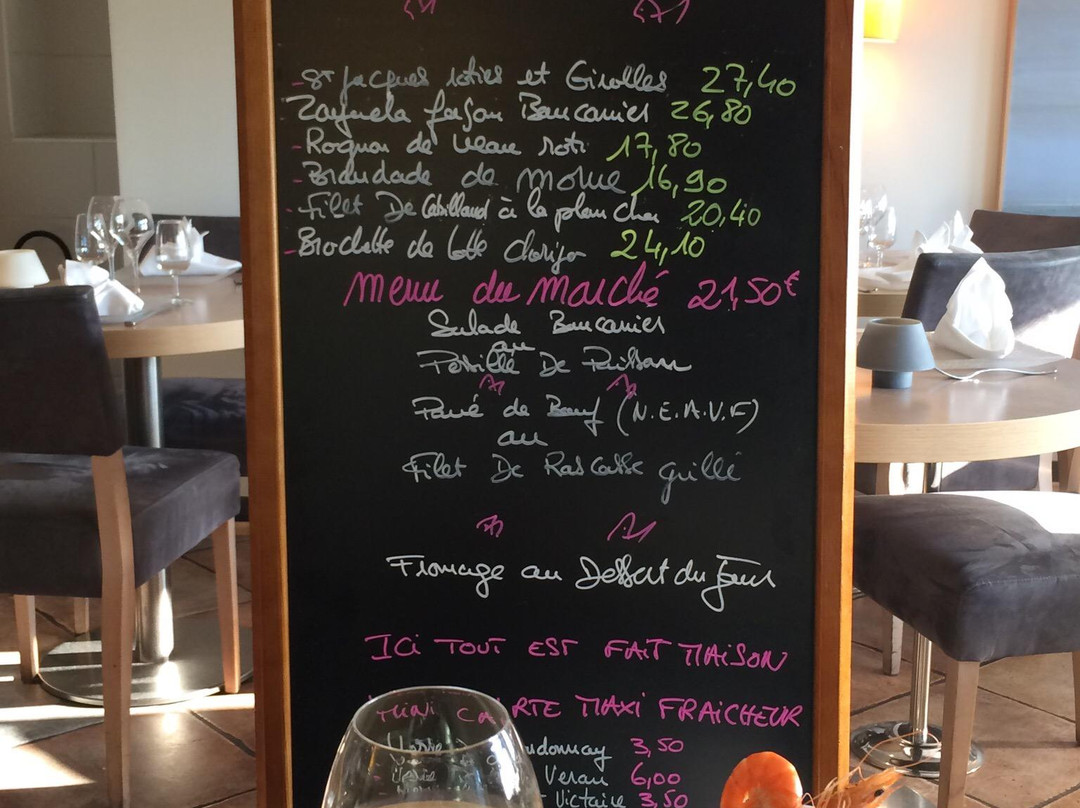 - St Jacques roties et Girolles 27,40
Zarzuela façon Boucanier 26,80
- Rognon de Veau roti 17,80
- Brandade de morue 16,90
- Filet De Cabillaud à la plancha 20,40
- Brochette de lotte chorizo 24,10
Menu du Marché 21,50€
Salade Boucanier
ou
De Poisson
Pavé de Bœuf (N.E.A.V.F)
ou
Filet De Rascasse grillé
Fromage ou Dessert du Jour
ICi TOUT EST FAIT MAiSON
MiNi CARTE MAXi FRAiCHEUR
Verre 3,50
Verre Veran 6,00
Victoire 3,50